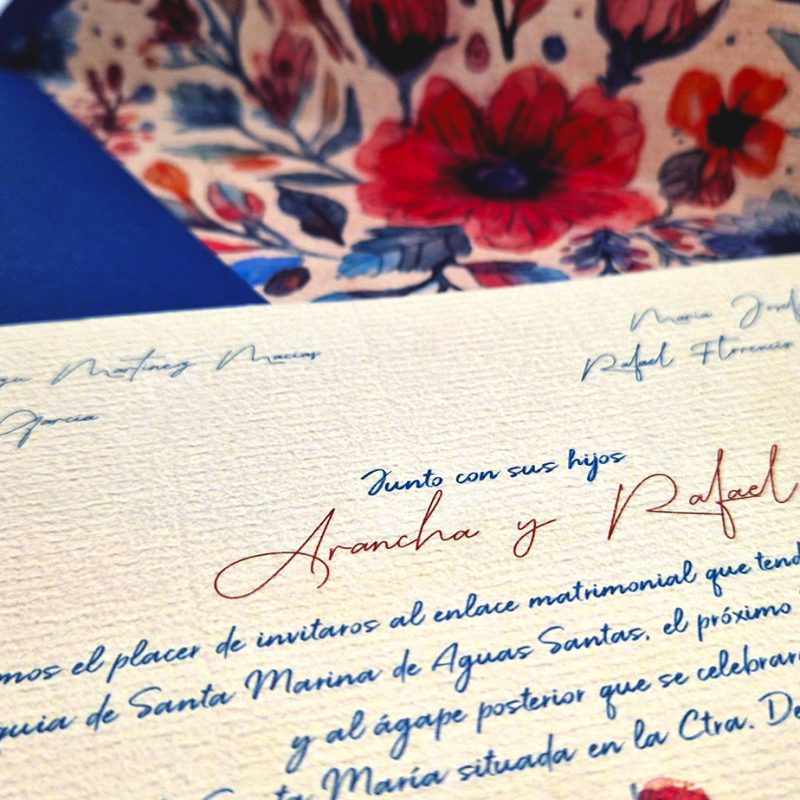 Martinez Macias
Garcia
Maria
Rafael Florencio
Junto con sus hijos
Arancha y Rafael
mos el placer de invitaros al enlace matrimonial que tend
quia de Santa Marina de Aguas Santas, el próximo
y al ágape posterior que se celebrar
Santa María situada en la Ctra. De